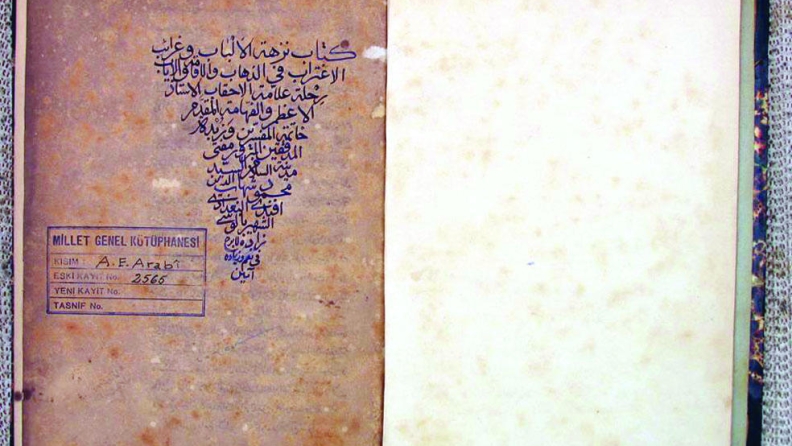 كتاب نزهة الالباب وغرائب
الاغتراب في الذهاب والاقامة والاياب
رحلة علامة الاحقاب الاستاذ
الاعظم والفهامة المقدم
خاتمة المفسرين وزبدة
المدققين مفتي
مدينة السلام السيد
محمود شهاب الدين
افندي البغدادي
الشهير بالوسي
زاده
آمين
MİLLET GENEL KÜTÜPHANESİ
KISIM : A. E. Arabî
ESKİ KAYIT No. 2565
YENİ KAYIT No.
TASNİF No.